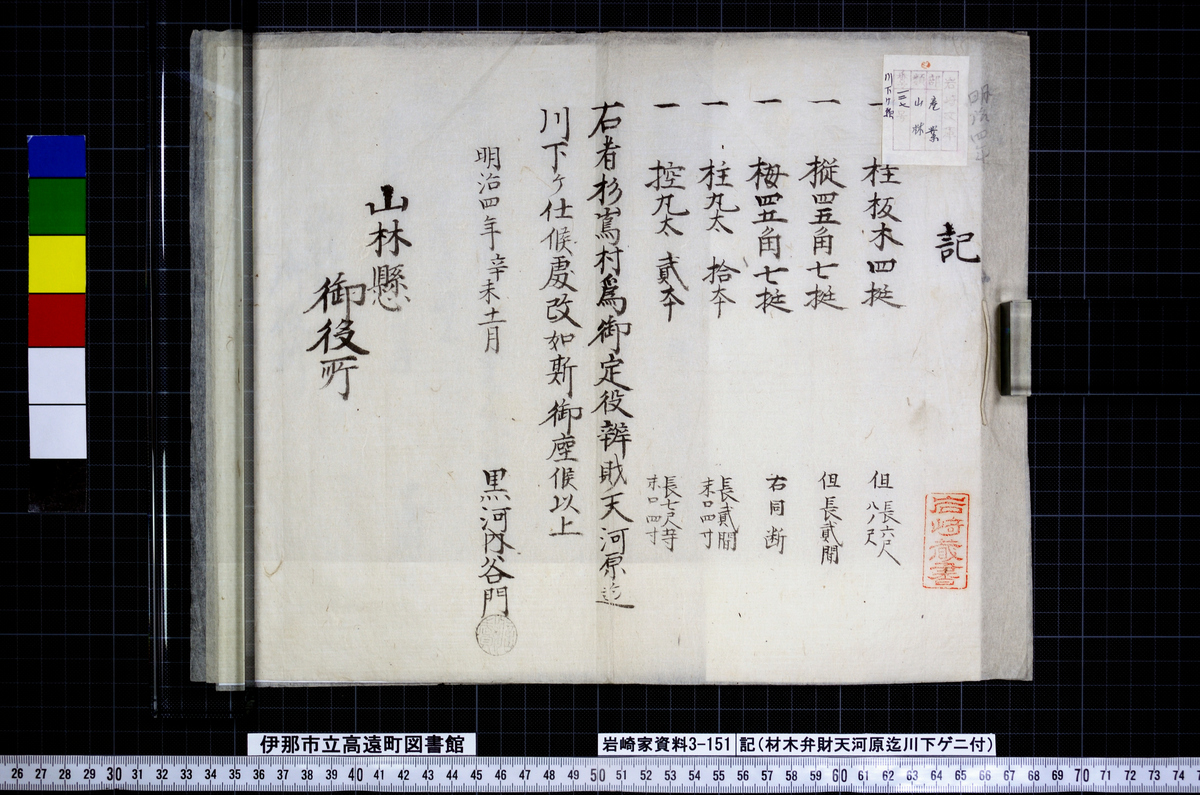 明治四年
産業
山林
川下ケ類
記
一 柱板木四挺 但 長六尺
八ノ尺
一 樅四五角七挺 但長貳間
一 栂四五角七挺 右同断
一 柱丸太 拾本 長貳間
末口四寸
一 控丸太 貳本 長七尺
末口四寸
右者杉嶌村為御定役辨財天河原迄
川下ケ仕候處改如斯御座候以上
明治四年辛未十一月
黒河内谷門
山林縣
御役所
岩崎蔵書
伊那市立高遠町図書館
岩崎家資料3-151 記(材木弁財天河原迄川下ゲニ付)
26 27 28 29 30 31 32 33 34 35 36 37 38 39 40 41 42 43 44 45 46 47 48 49 50 51 52 53 54 55 56 57 58 59 60 61 62 63 64 65 66 67 68 69 70 71 72 73 74